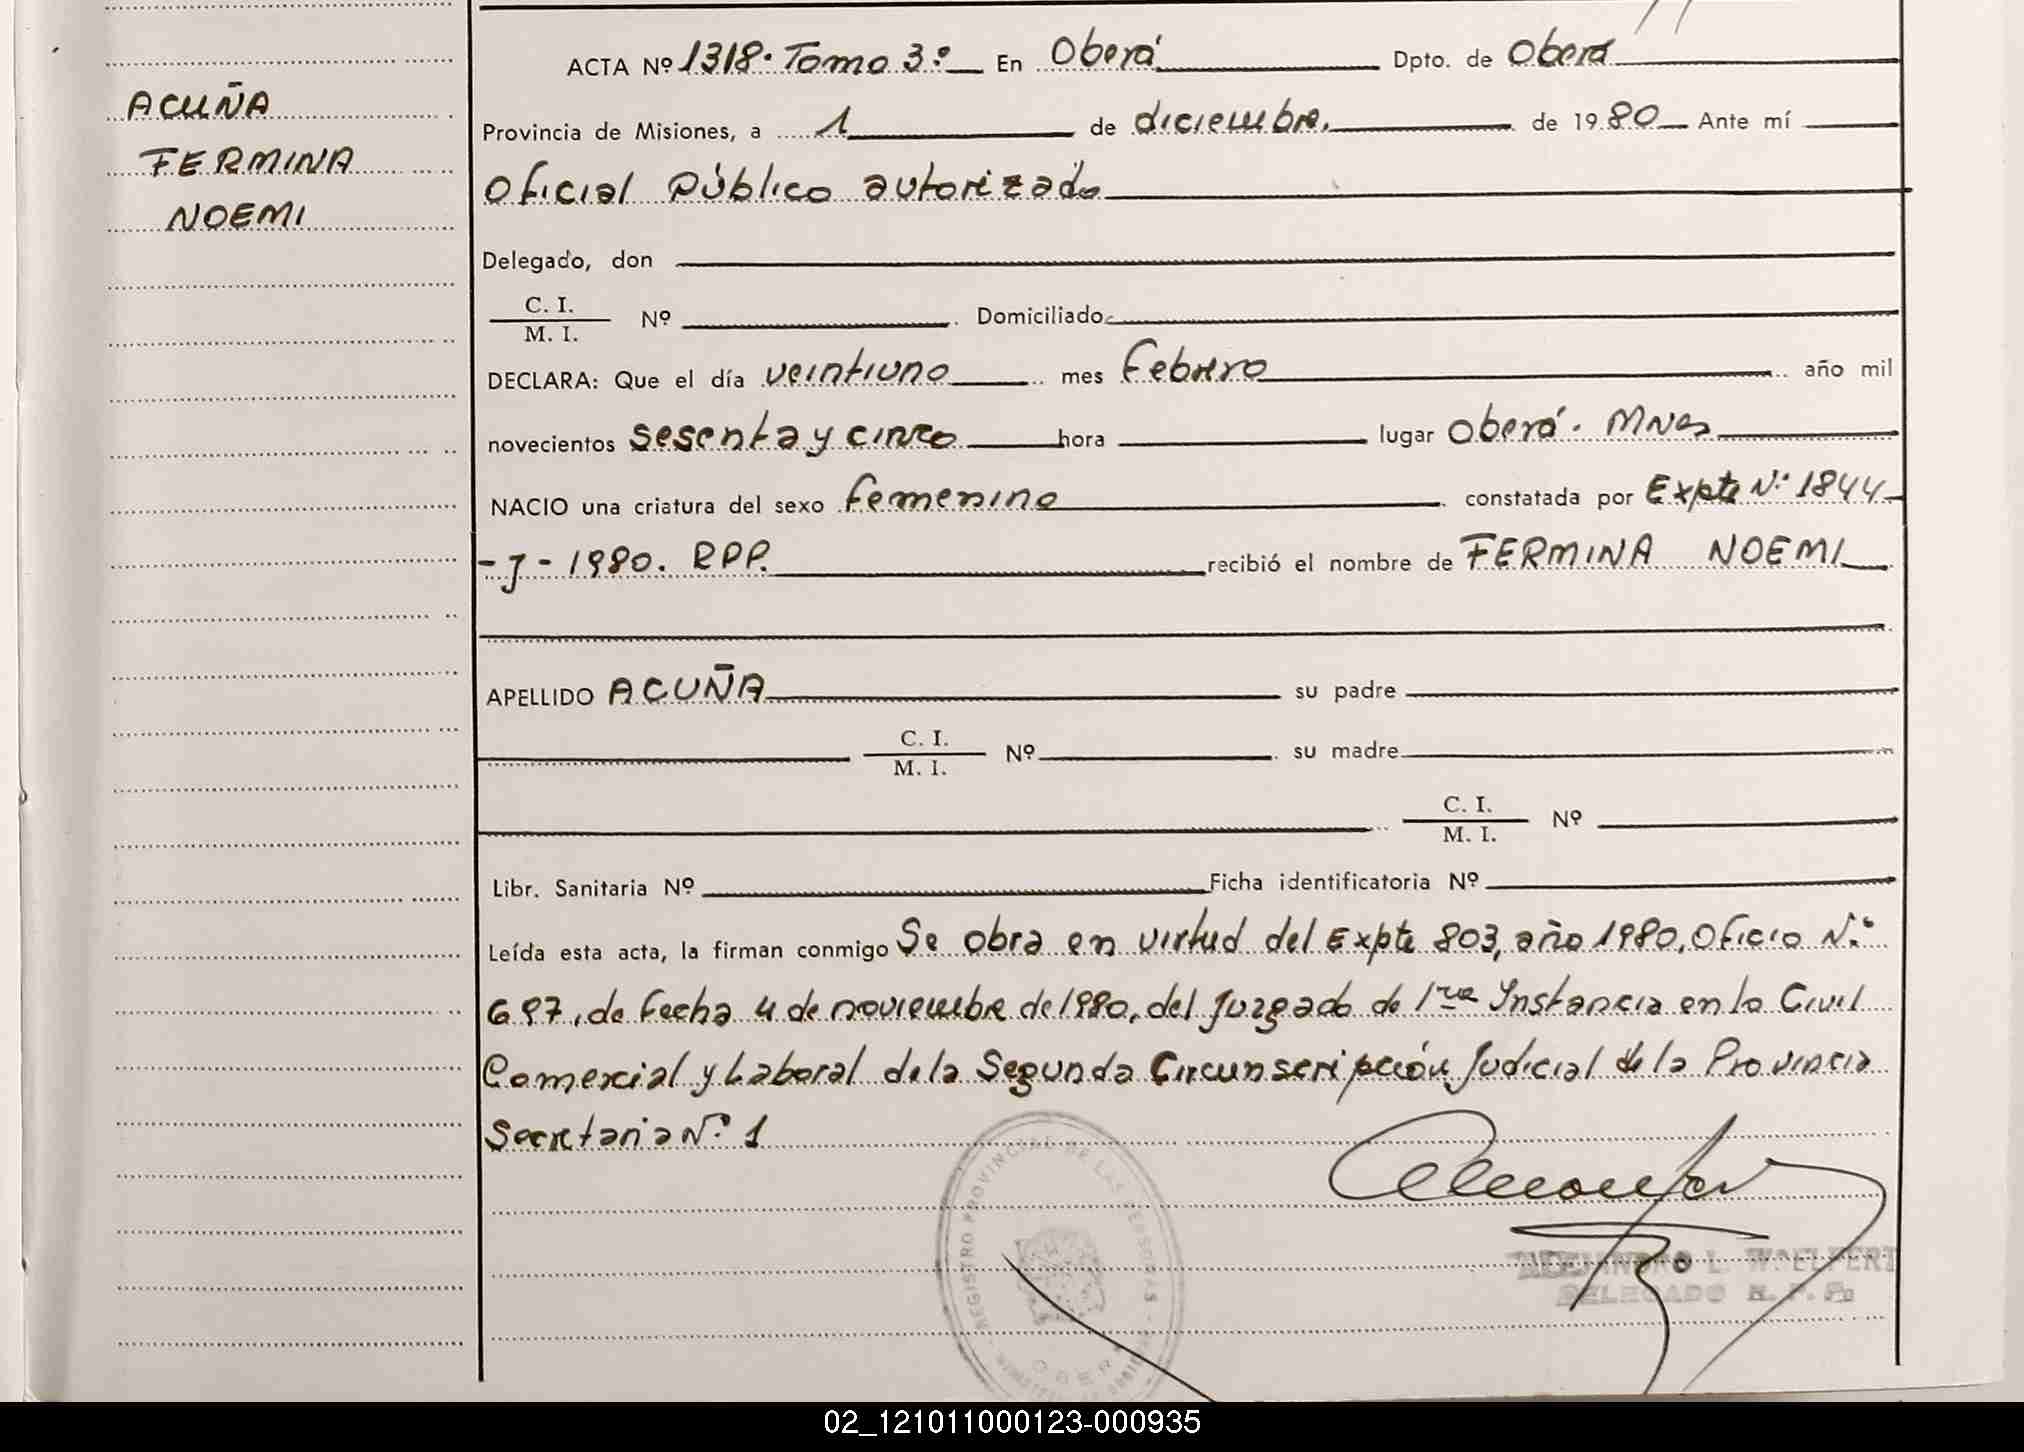 ACUÑA
FERMINA
NOEMI
ACTA Nº 1318. Tomo 3º En Oberá Dpto. de Oberá
Provincia de Misiones, a 1 de diciembre, de 1980 Ante mí
Oficial Público autorizado
Delegado, don
C. I.
M. I. Nº Domiciliado
DECLARA: Que el día veintiuno mes Febrero año mil
novecientos sesenta y cinco hora lugar Oberá. Mnes
NACIO una criatura del sexo Femenino constatada por Expte Nº 1844
- J - 1980. RPP. recibió el nombre de FERMINA NOEMI
APELLIDO ACUÑA su padre
C. I.
M. I. Nº su madre
C. I.
M. I. Nº
Libr. Sanitaria Nº Ficha identificatoria Nº
Leída esta acta, la firman conmigo Se obra en virtud del Expte 803, año 1980, Oficio Nº
697, de Fecha 4 de noviembre de 1980, del Juzgado de 1ra Instancia en lo Civil
Comercial y Laboral de la Segunda Circunscripción Judicial de la Provincia
Secretaria Nº 1
REGISTRO PROVINCIAL DE LAS PERSONAS
OBERA
L. WOELFERT
DELEGADO R. P. P.
02_121011000123-000935